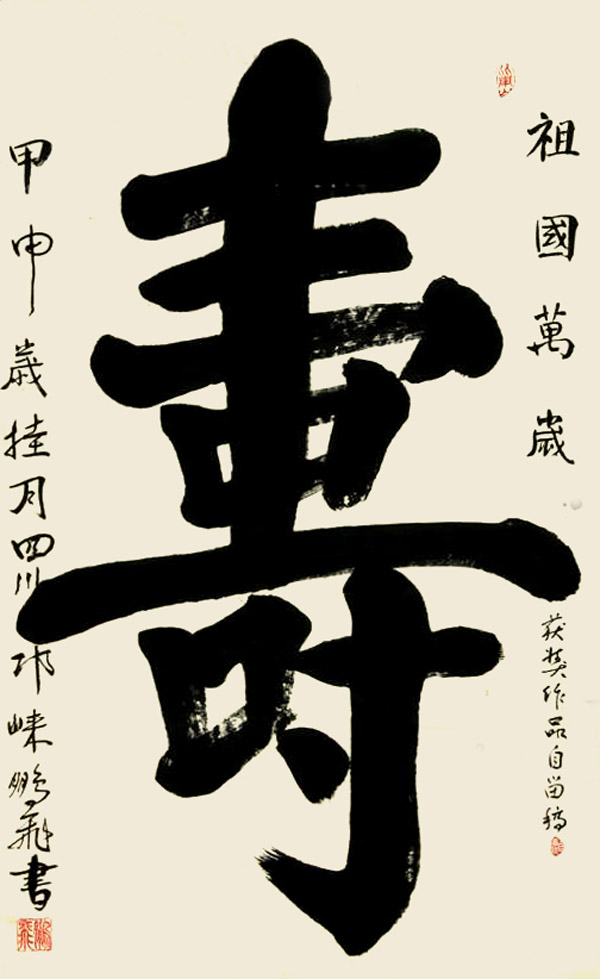 祖國萬歲
获奖作品自留稿
壽
甲申歲桂月四川邛崃鹏飛書